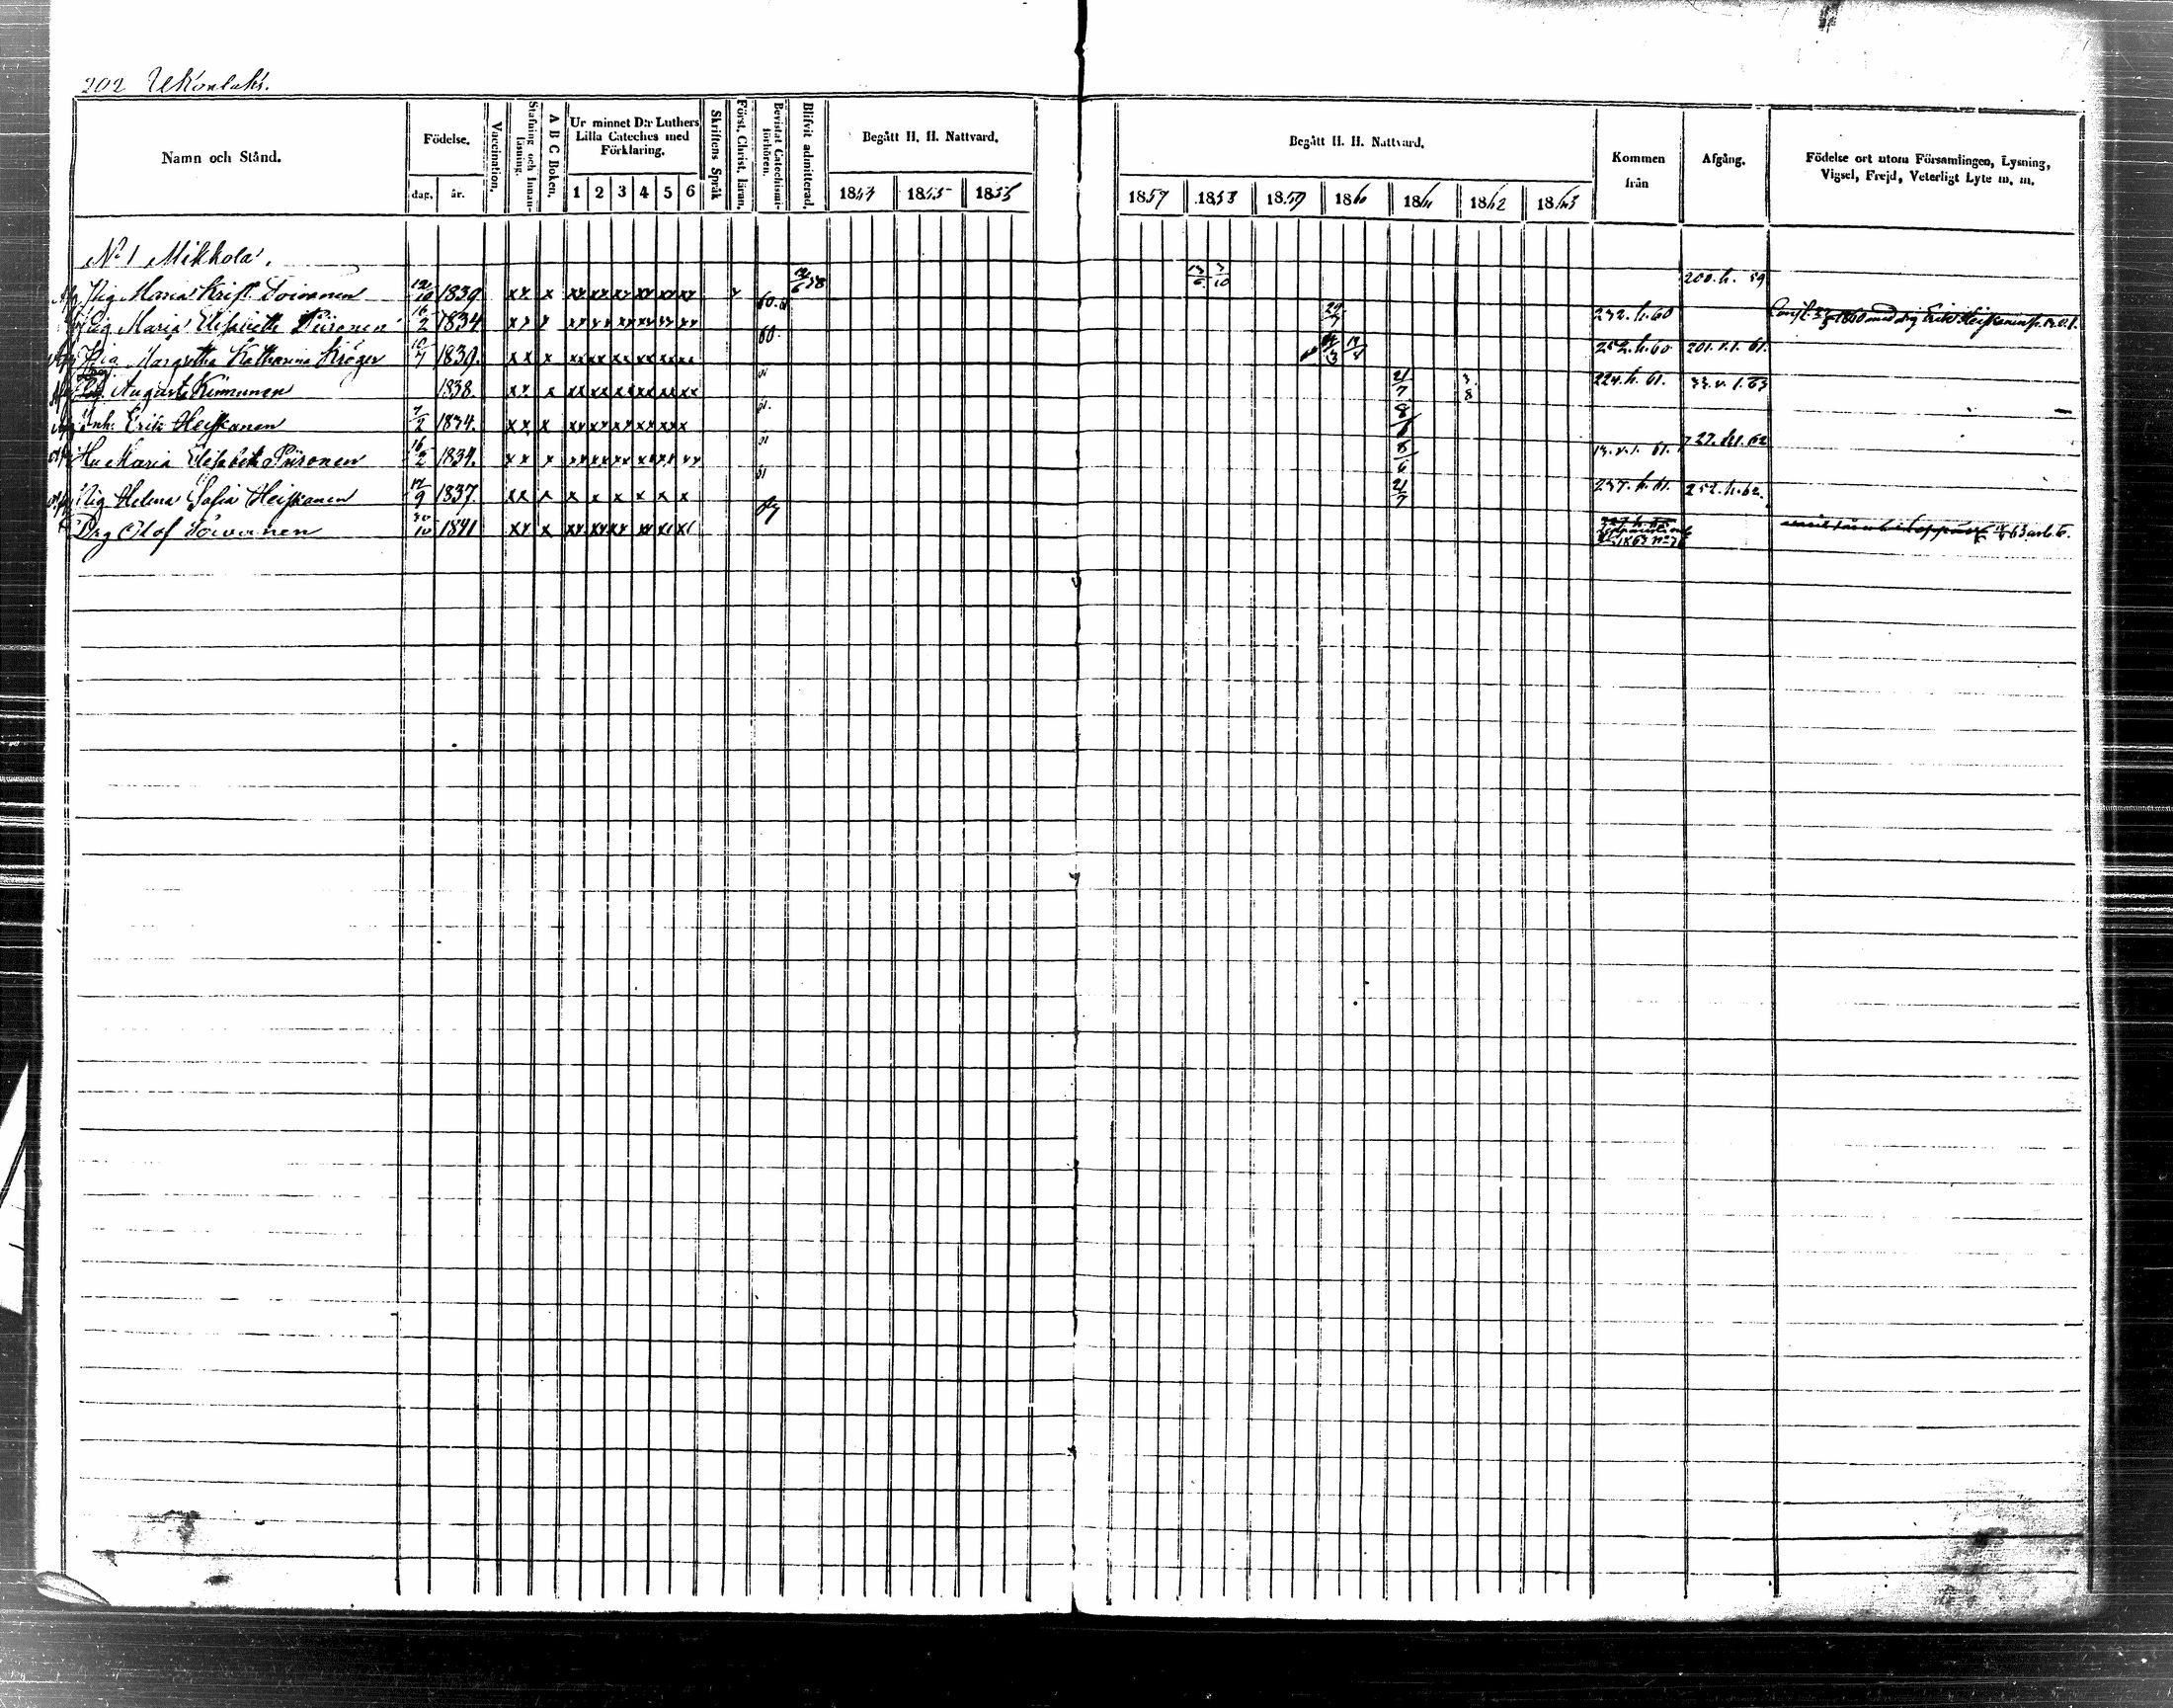 202 Ukonlaks.
Namn och Stånd. Födelse. dag. år. Vaccination. Stafning och Innanläsning. A B C Boken. Ur minnet D:r Luthers Lilla Cateches med Förklaring. 1 2 3 4 5 6 Skriftens Språk Först. Christ. läran. Bevistat Catechismiförhören. Blifvit admitterad. Begått H. H. Nattvard. 1855 Begått H. H. Nattvard. 1857 1858 1859 1860 1861 1862 1863 Kommen från Afgång. Födelse ort utom Församlingen, Lysning, Vigsel, Frejd, Veterligt Lyte m. m.
No 1 Mikkola.
Pig Maria Krist. Toivanen 12/10 1839 xx x xx xx xx xx xx xx 12/6 58 13/6 3/10 200.h. 59
Pig Maria Elisabeth Piironen 16/2 1834 xx x xx xx xx xx xx xx 60. 29/7 232.h.60
Pig Margretha Katharina Kröger 10/7 1839. xx x xx xx xx xx xx xx 60. 252.h.60 201.v.1.61.
August Kinnunen 1838 xx x xx xx xx xx xx xx 21/7 3/8 224.h.61. 33.v.1.63
Inh. Erik Heiskanen 7/2 1834. xx x xx xx xx xx xx x 61. 8/6
Hu Maria Elisabeth Piironen 16/2 1834. xx x xx xx xx xx xx xx 61 8/6 13.v.1.61. 227.h.1.62
Pig Helena Sofia Heiskanen 17/9 1837. xx x x x x x x x 61 21/7 237.h.61. 252.h.62.
Drg Olof Toivanen 30/10 1841 xx x xx xx xx xx xx xx